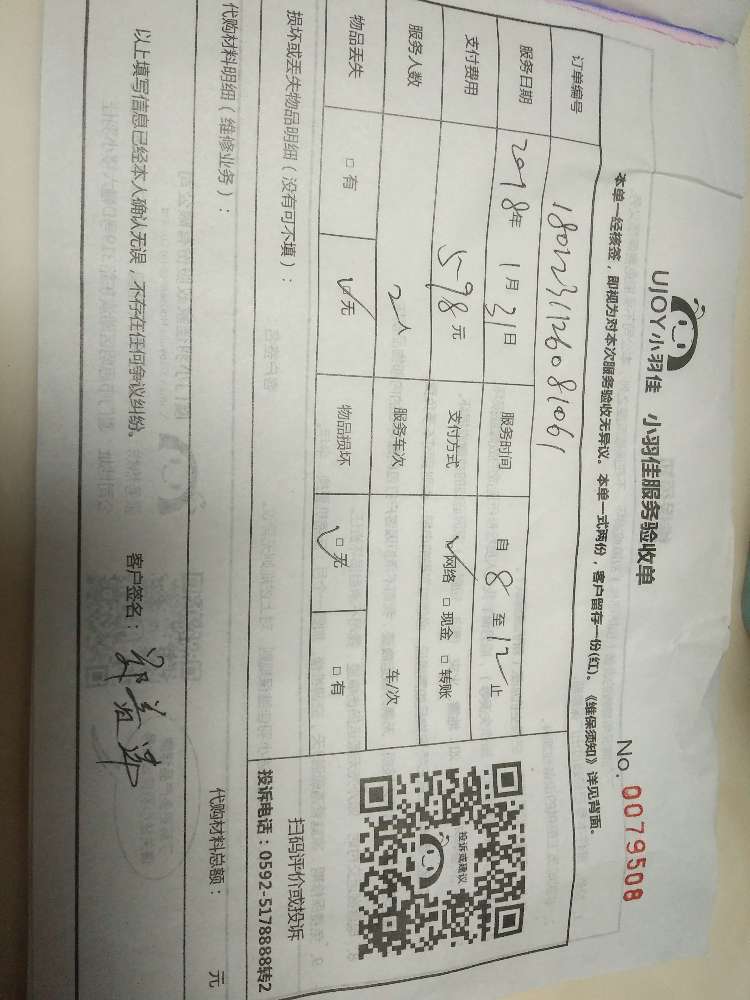 UJOY小羽佳 小羽佳服务验收单
No. 0079508
本单一经核签，即视为对本次服务验收无异议。本单一式两份，客户留存一份(红)。《维保须知》详见背面。
订单编号 1801231126081061
服务日期 2018年 1月 31日 服务时间 自 8 至 12 止
支付费用 598元 支付方式 ✓网络 □现金 □转账
服务人数 2人 服务车次 车/次
物品丢失 □有 ☑无 物品损坏 ☑无 □有
投诉或建议
扫码评价或投诉
投诉电话：0592-5178888转2
损坏或丢失物品明细（没有可不填）：
代购材料明细（维修业务）： 代购材料总额： 元
以上填写信息已经本人确认无误，不存在任何争议纠纷。 客户签名：